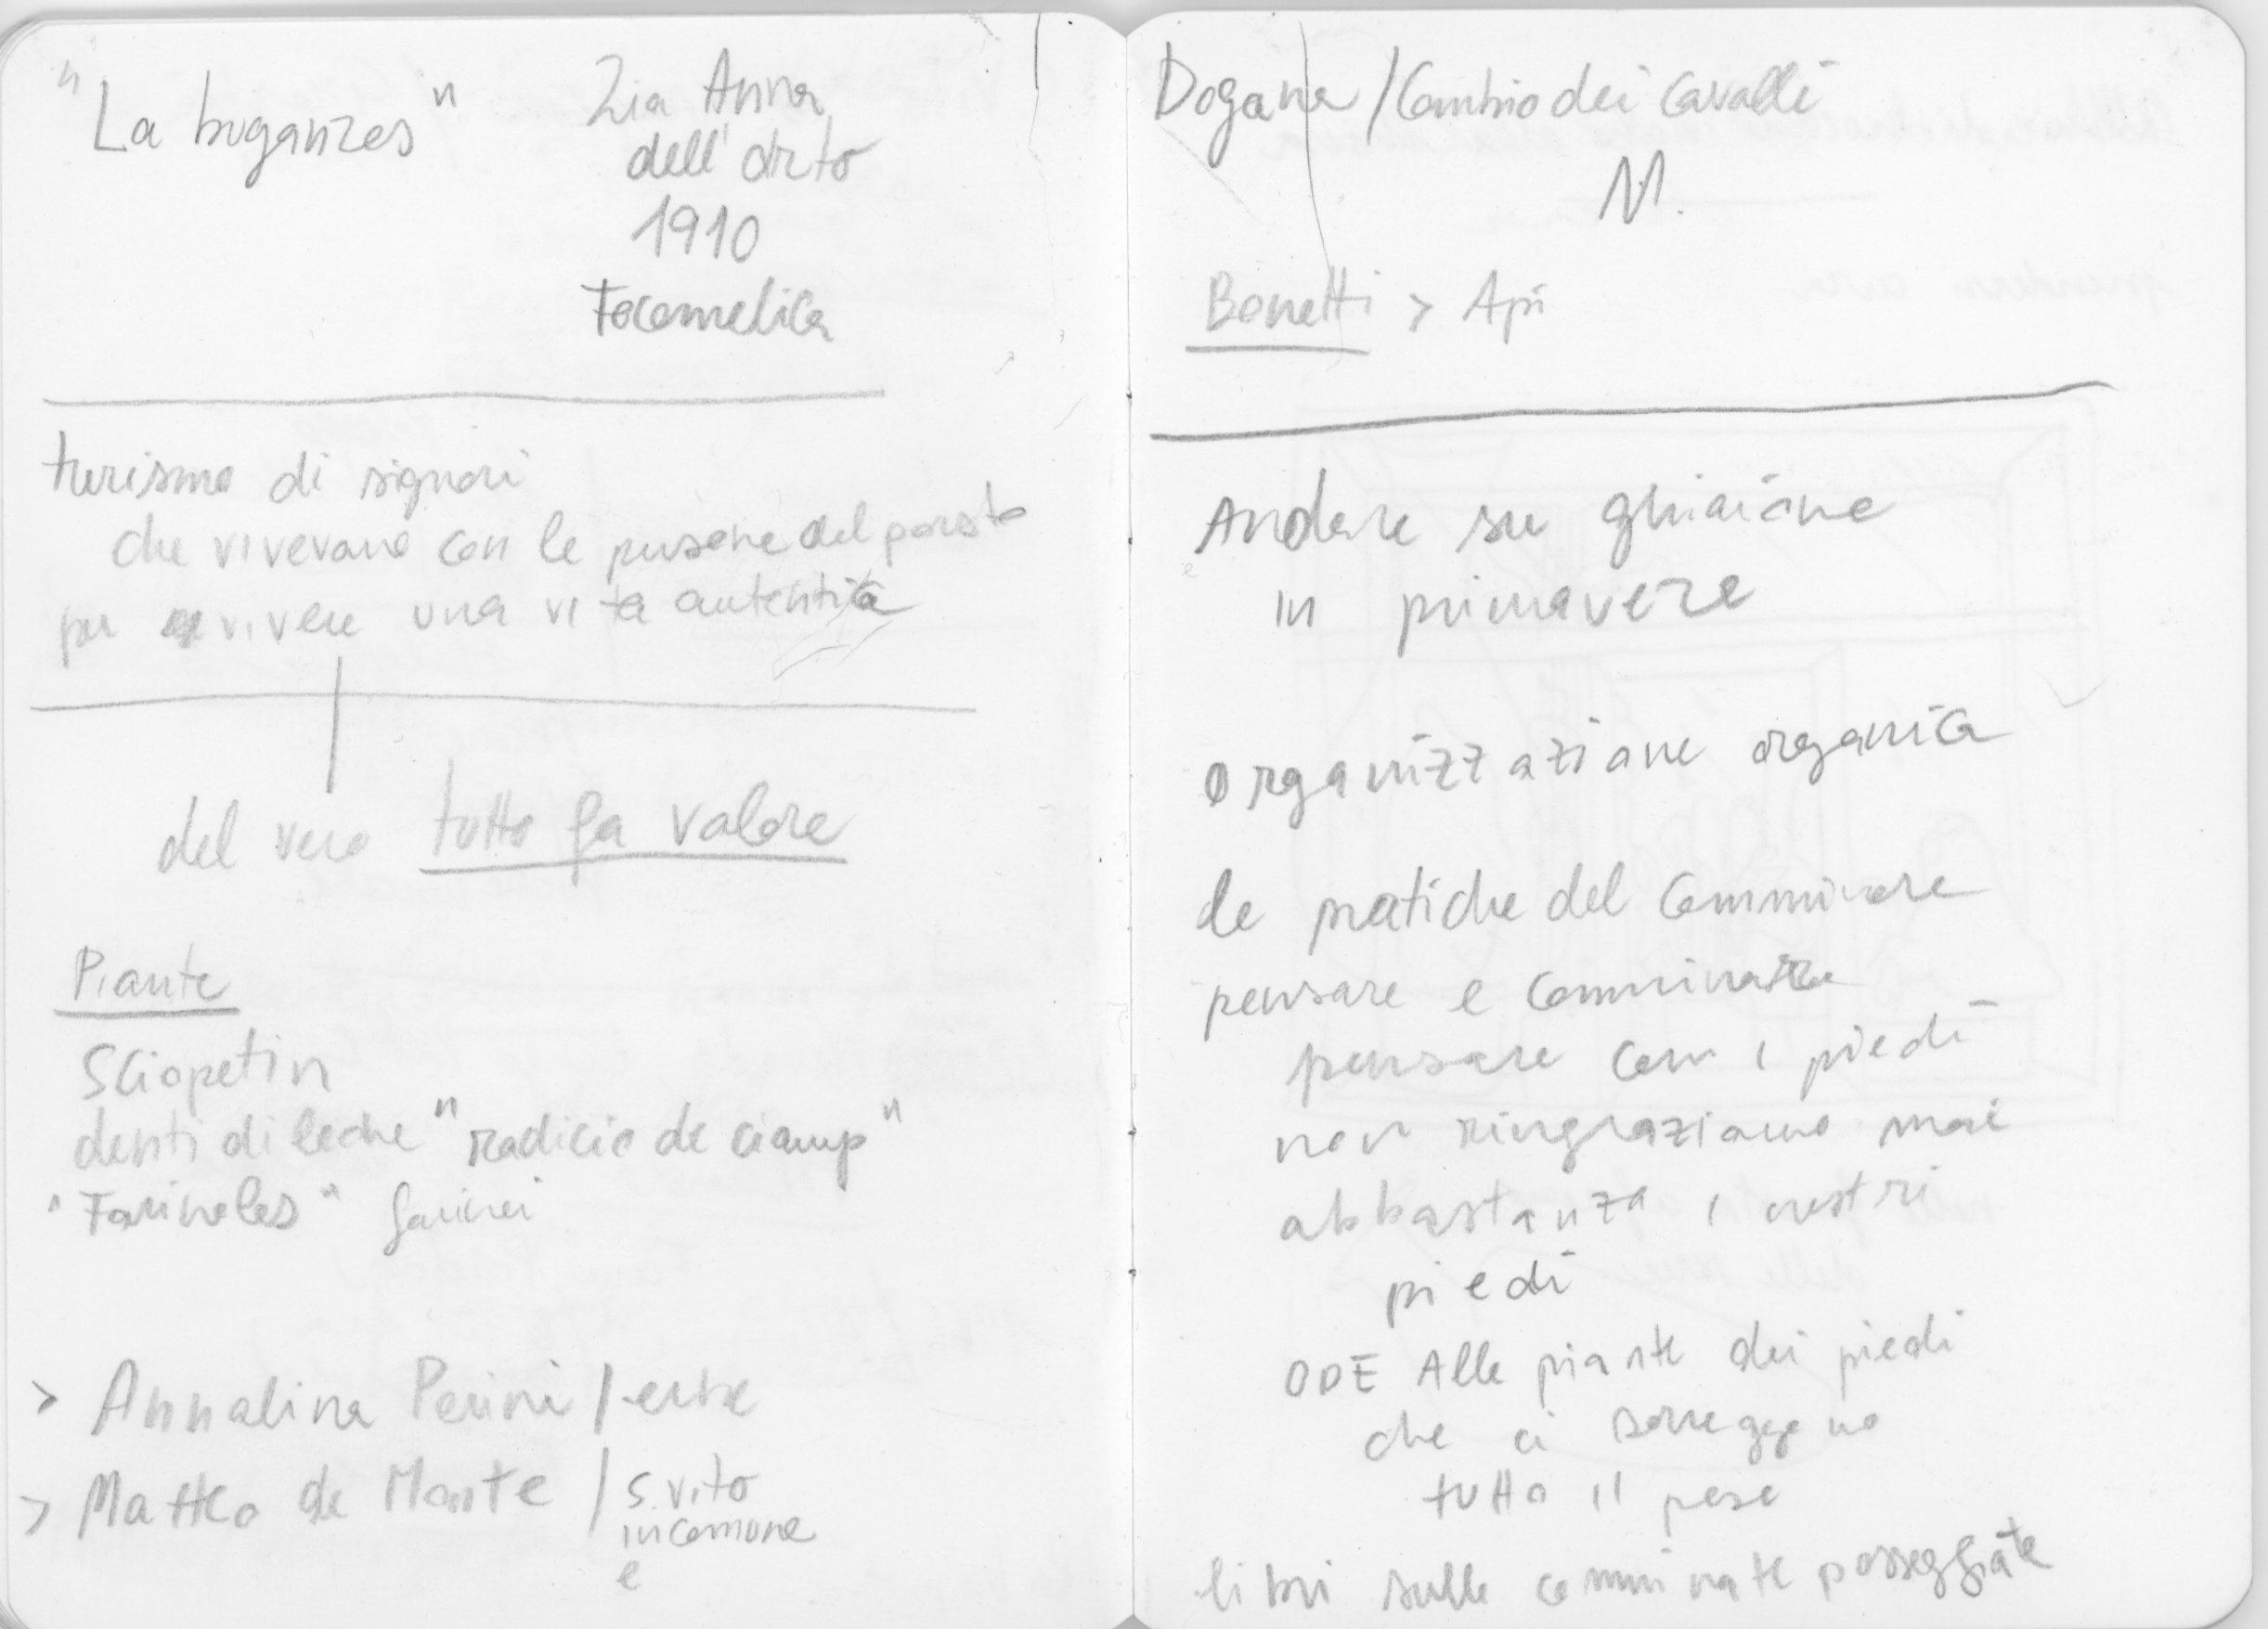 "La buganzes"
Zia Anna
dell'orto
1910
Focomelica
turismo di signori
che vivevano con le persone del posto
per vivere una vita autentica
del vero tutto fa valore
Piante
Sciopetin
denti di leone "radicio de ciamp"
"Farineles" farinei
> Annalina Perini / erbe
> Matteo de Monte / S. Vito
in comune
e
Dogana / Cambio dei cavalli
M.
Bonetti > Api
Andare su ghiaione
in primavera
Organizzazione organica
le pratiche del camminare
pensare e camminare
pensare con i piedi
non ringraziamo mai
abbastanza i nostri
piedi
ODE Alle piante dei piedi
che ci sorreggono
tutto il peso
libri sulle camminate passeggiate